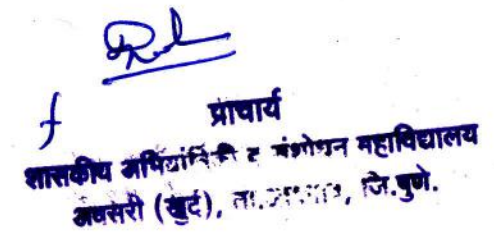 प्राचार्य
शासकीय अभियांत्रिकी व संशोधन महाविद्यालय
अवसरी (खुर्द), जि.पुणे.